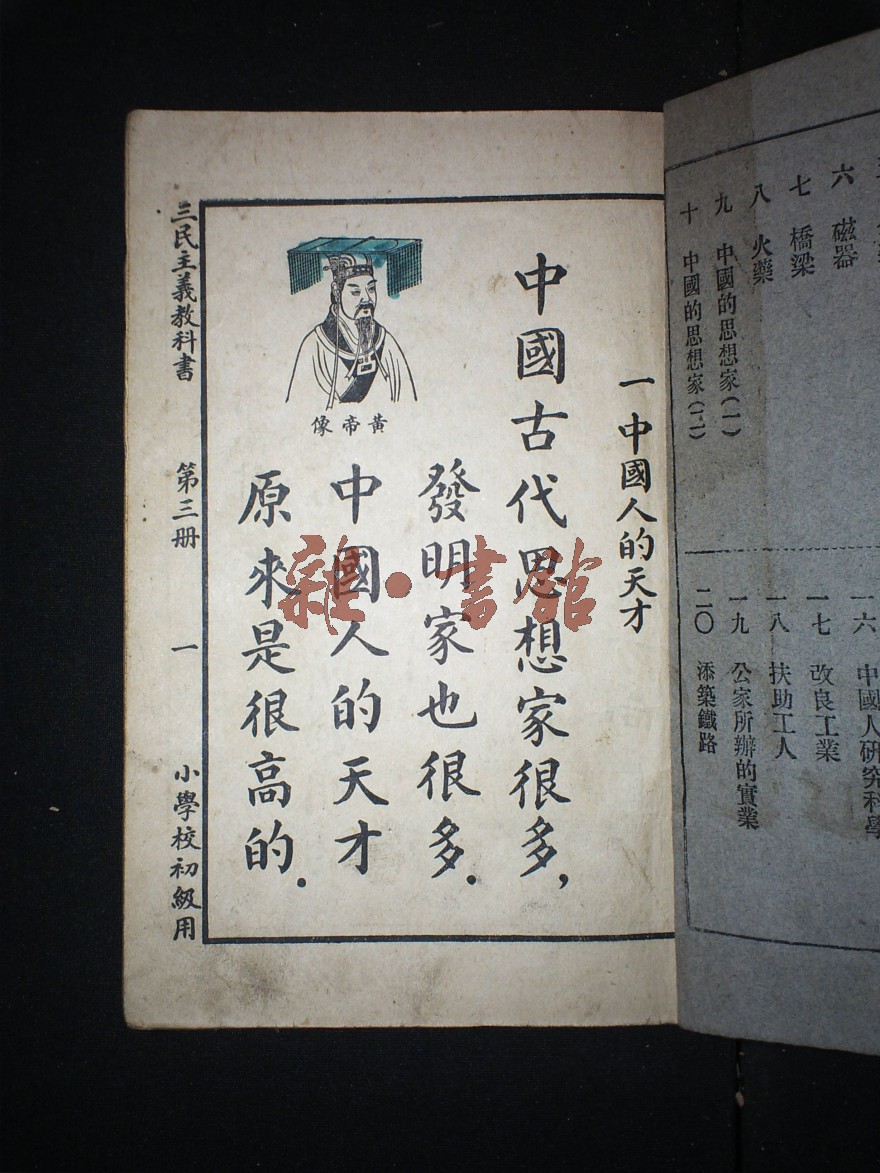 六 磁器
七 橋梁
八 火藥
九 中國的思想家(一)
十 中國的思想家(二)
一六 中國人研究科學
一七 改良工業
一八 扶助工人
一九 公家所辦的實業
二〇 添築鐵路
一 中國人的天才
中國古代思想家很多,
發明家也很多.
中國人的天才
原來是很高的.
黃帝像
三民主義教科書 第三册 一 小學校初級用
雜·書館